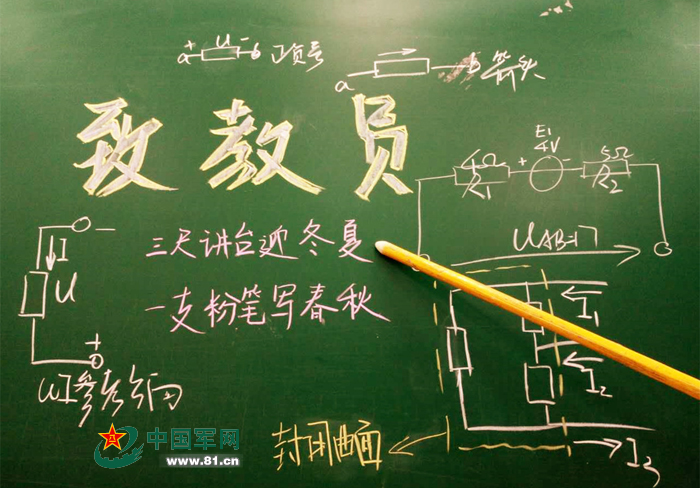 a + U - b 正负号
a b 箭头
致教员
E1
4V
4Ω + - 5Ω
R1 R2
三尺讲台迎冬夏
UAB=?
一支粉笔写春秋
-
I
U
+
UI参考方向
I1
I2
I3
封闭曲面
中国军网
www.81.cn